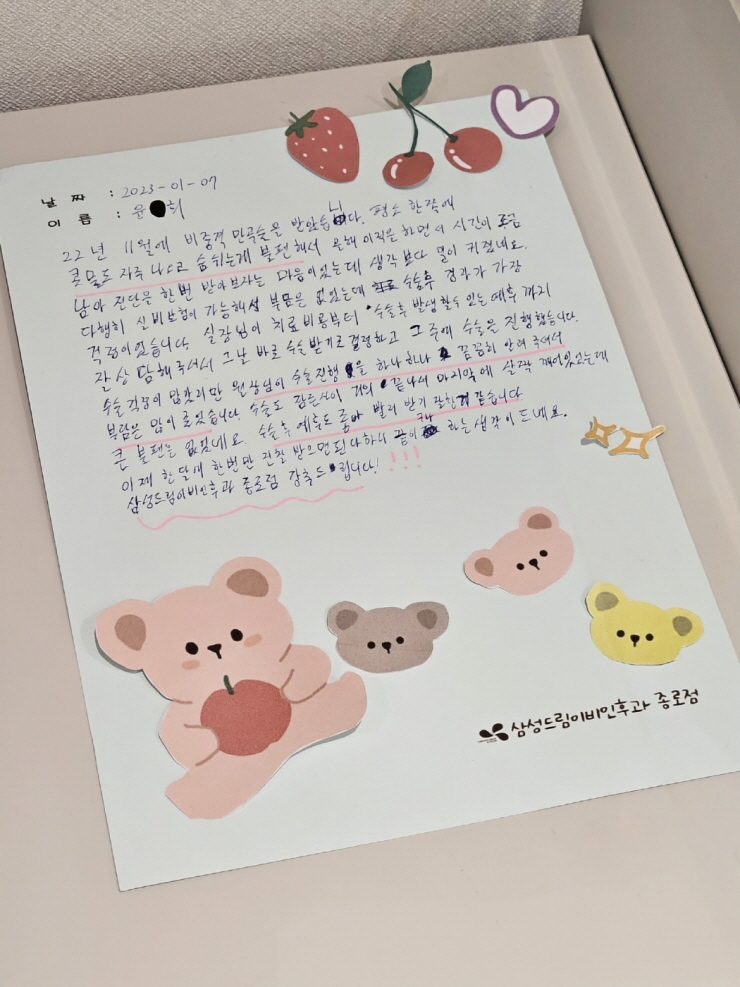 날 짜 : 2023-01-07
이 름 : 윤 희
22년 11월에 비중격 만곡술을 받았습니다. 평소 한쪽에
콧물도 자주 나오고 숨쉬는게 불편해서 올해 이직을 하면서 시간이 조금
남아 진단을 한번 받아보자는 마음이있는데 생각 보다 일이 커졌네요.
다행히 실비보험이 가능해서 부담은 없었는데 수술후 경과가 가장
걱정이었습니다. 실장님이 치료비용부터 수술후 발생할수 있는 예후 까지
잘 상담해 주셔서 그날 바로 수술받기로 결정하고 그 주에 수술을 진행했습니다.
수술 걱정이 많았지만 원장님이 수술진행 을 하나하나 꼼꼼히 알려 주셔서
부담은 많이 줄었습니다. 수술도 잠든사이 거의 끝나서 마지막에 살짝 깨어있었는데
큰 불편은 없었네요. 수술후 예후도 좋아 빨리 받기 잘한거 같습니다
이제 한달새 한번만 진찰 받으면된다하니 끝이구나 하는 생각이 드네요.
삼성드림이비인후과 종로점 강추드립니다! !!!
삼성드림이비인후과 종로점